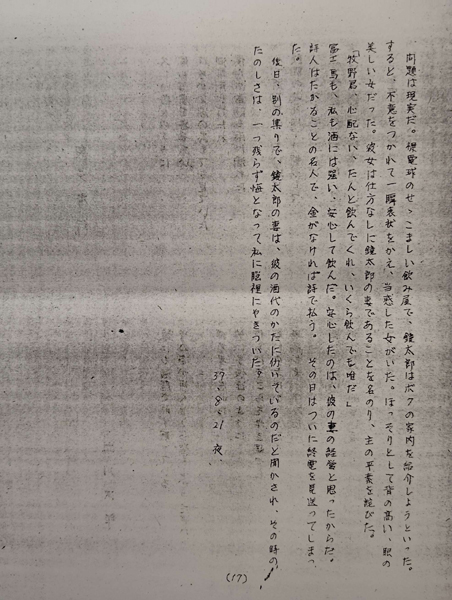 問題は現実だ。裸電球のせゝこましい飲み屋で、鏡太郎はボクの家内を紹介しようといった。
すると、不意をつかれて一瞬表状をかえ、当惑した女がいた。ほっそりとして背の高い、眼の
美しい女だった。彼女は仕方なしに鏡太郎の妻であることを名のり、主の平素を詫びた。
「牧野君、心配ない、たんと飲んでくれ、いくら飲んでも唯だ」
冨士馬も、私も酒には強い、安心して飲んだ。安心したのは、彼の妻の経営と思ったからだ。
詩人はたかることの名人で、金がなければ詩で払う。その日はついに終電を見送ってしまっ
た。
後日、別の集りで、鏡太郎の妻は、彼の酒代のかたに働いているのだと聞かされ、その時の
たのしさは、一つ残らず悔となって私に脳裡にやきついた。
37、8、21 夜、
(17)